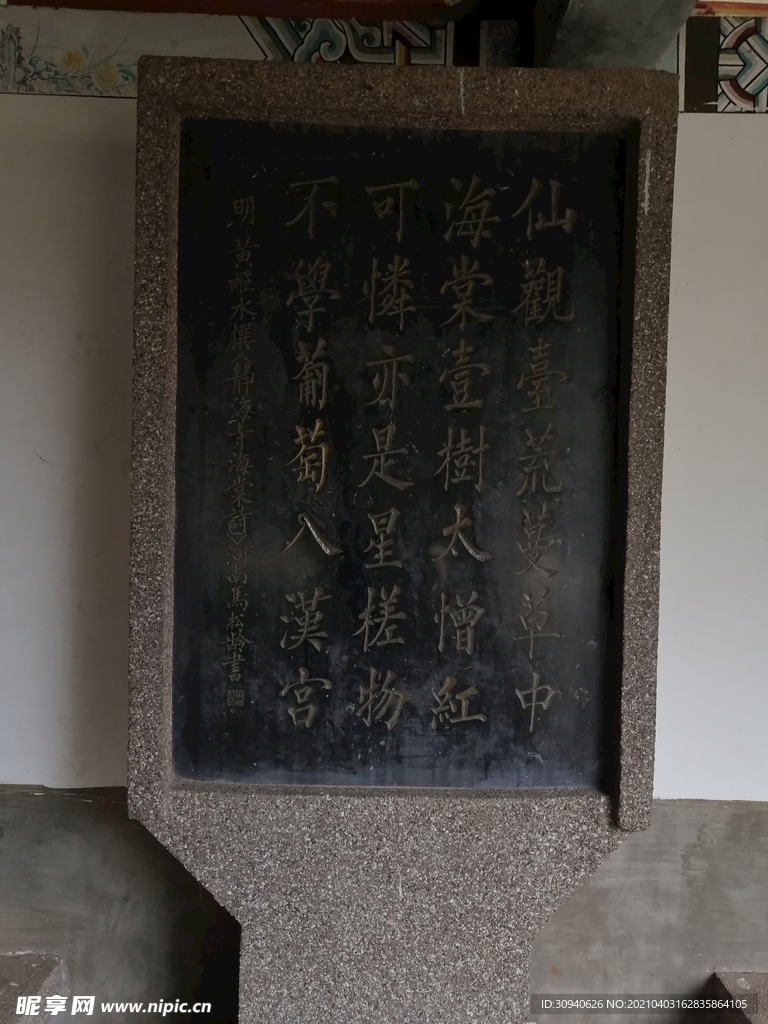 仙觀臺荒蔓草中
海棠壹樹太憎紅
可憐亦是星槎物
不學葡萄入漢宮
明 黃姬水撰《靜海寺海棠詩》河南馬松齡書
昵享网 www.nipic.cn
ID:30940626 NO:20210403162835864105